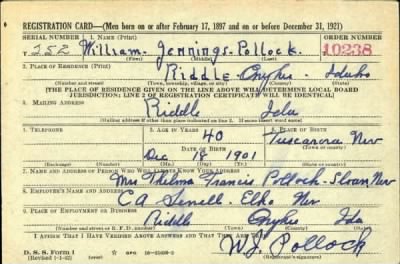 REGISTRATION CARD—(Men born on or after February 17, 1897 and on or before December 31, 1921)
SERIAL NUMBER 1. NAME (Print) ORDER NUMBER
T 252 William Jennings Pollock 10238
(First) (Middle) (Last)
2. PLACE OF RESIDENCE (Print)
Riddle Owyhee Idaho
(Number and street) (Town, township, village, or city) (County) (State)
[THE PLACE OF RESIDENCE GIVEN ON THE LINE ABOVE WILL DETERMINE LOCAL BOARD
JURISDICTION; LINE 2 OF REGISTRATION CERTIFICATE WILL BE IDENTICAL]
3. MAILING ADDRESS
Riddle Ida
[Mailing address if other than place indicated on line 2. If same insert word same]
4. TELEPHONE 5. AGE IN YEARS 6. PLACE OF BIRTH
40 Tuscarora
DATE OF BIRTH (Town or county)
Nev
Dec 18 1901
(Exchange) (Number) (Mo.) (Day) (Yr.) (State or country)
7. NAME AND ADDRESS OF PERSON WHO WILL ALWAYS KNOW YOUR ADDRESS
Mrs Thelma Francis Pollock - Nev
8. EMPLOYER'S NAME AND ADDRESS
CA Sewell - Elko Nev
9. PLACE OF EMPLOYMENT OR BUSINESS
Riddle Owyhee Ida
(Number and street or R. F. D. number) (Town) (County) (State)
I AFFIRM THAT I HAVE VERIFIED ABOVE ANSWERS AND THAT THEY ARE TRUE.
D. S. S. Form 1
(Revised 1-1-42) (over)
W J Pollock
(Registrant's signature)